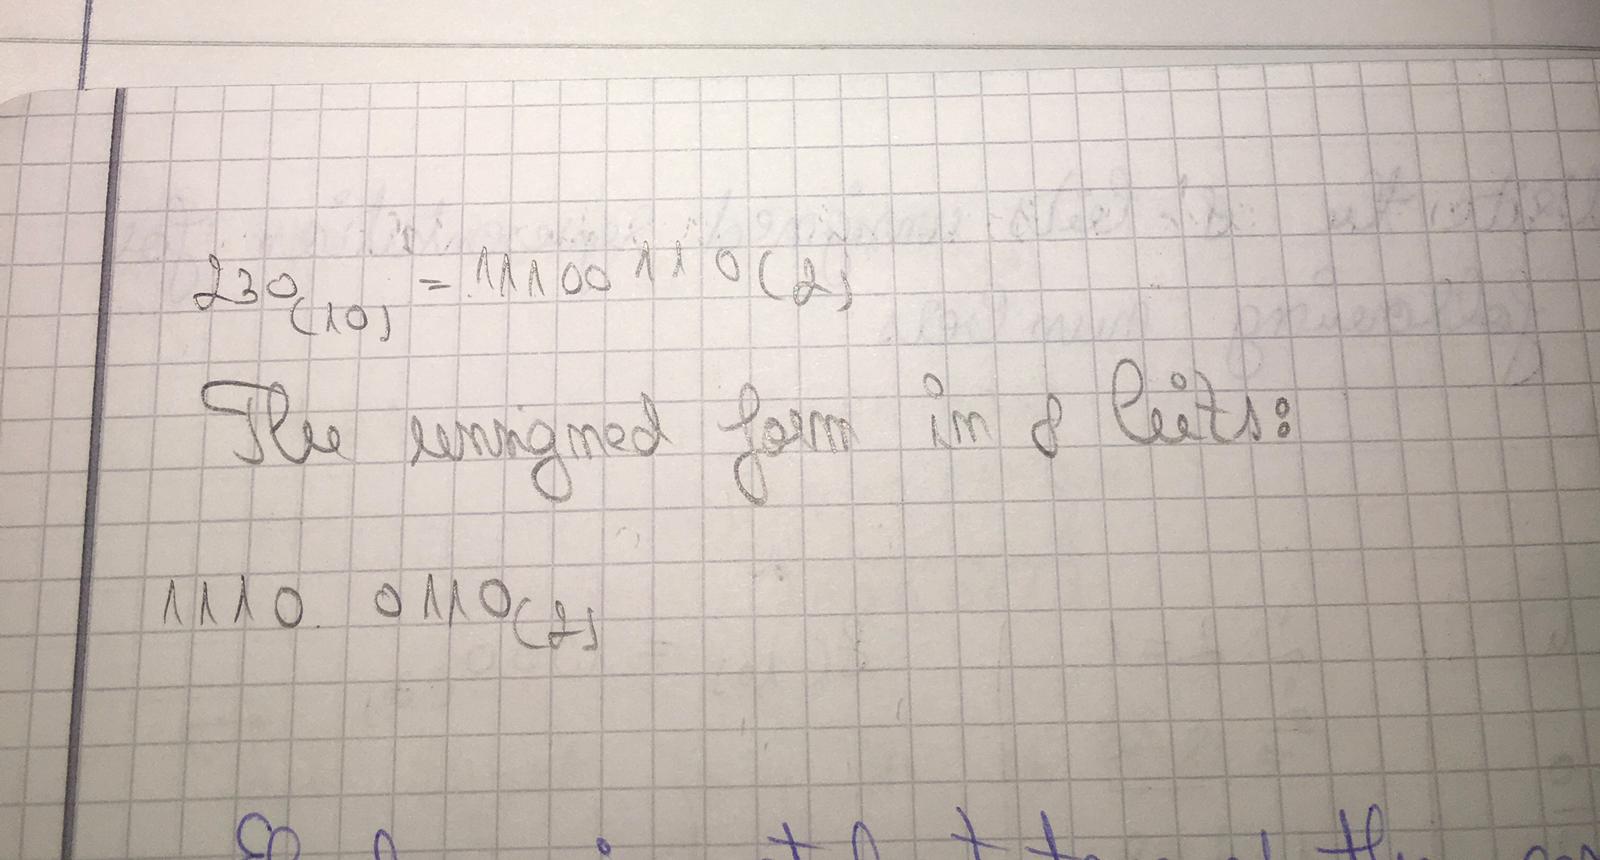 230(10) = 11100110(2)
The unsigned form in 8 bits:
1110 0110(2)